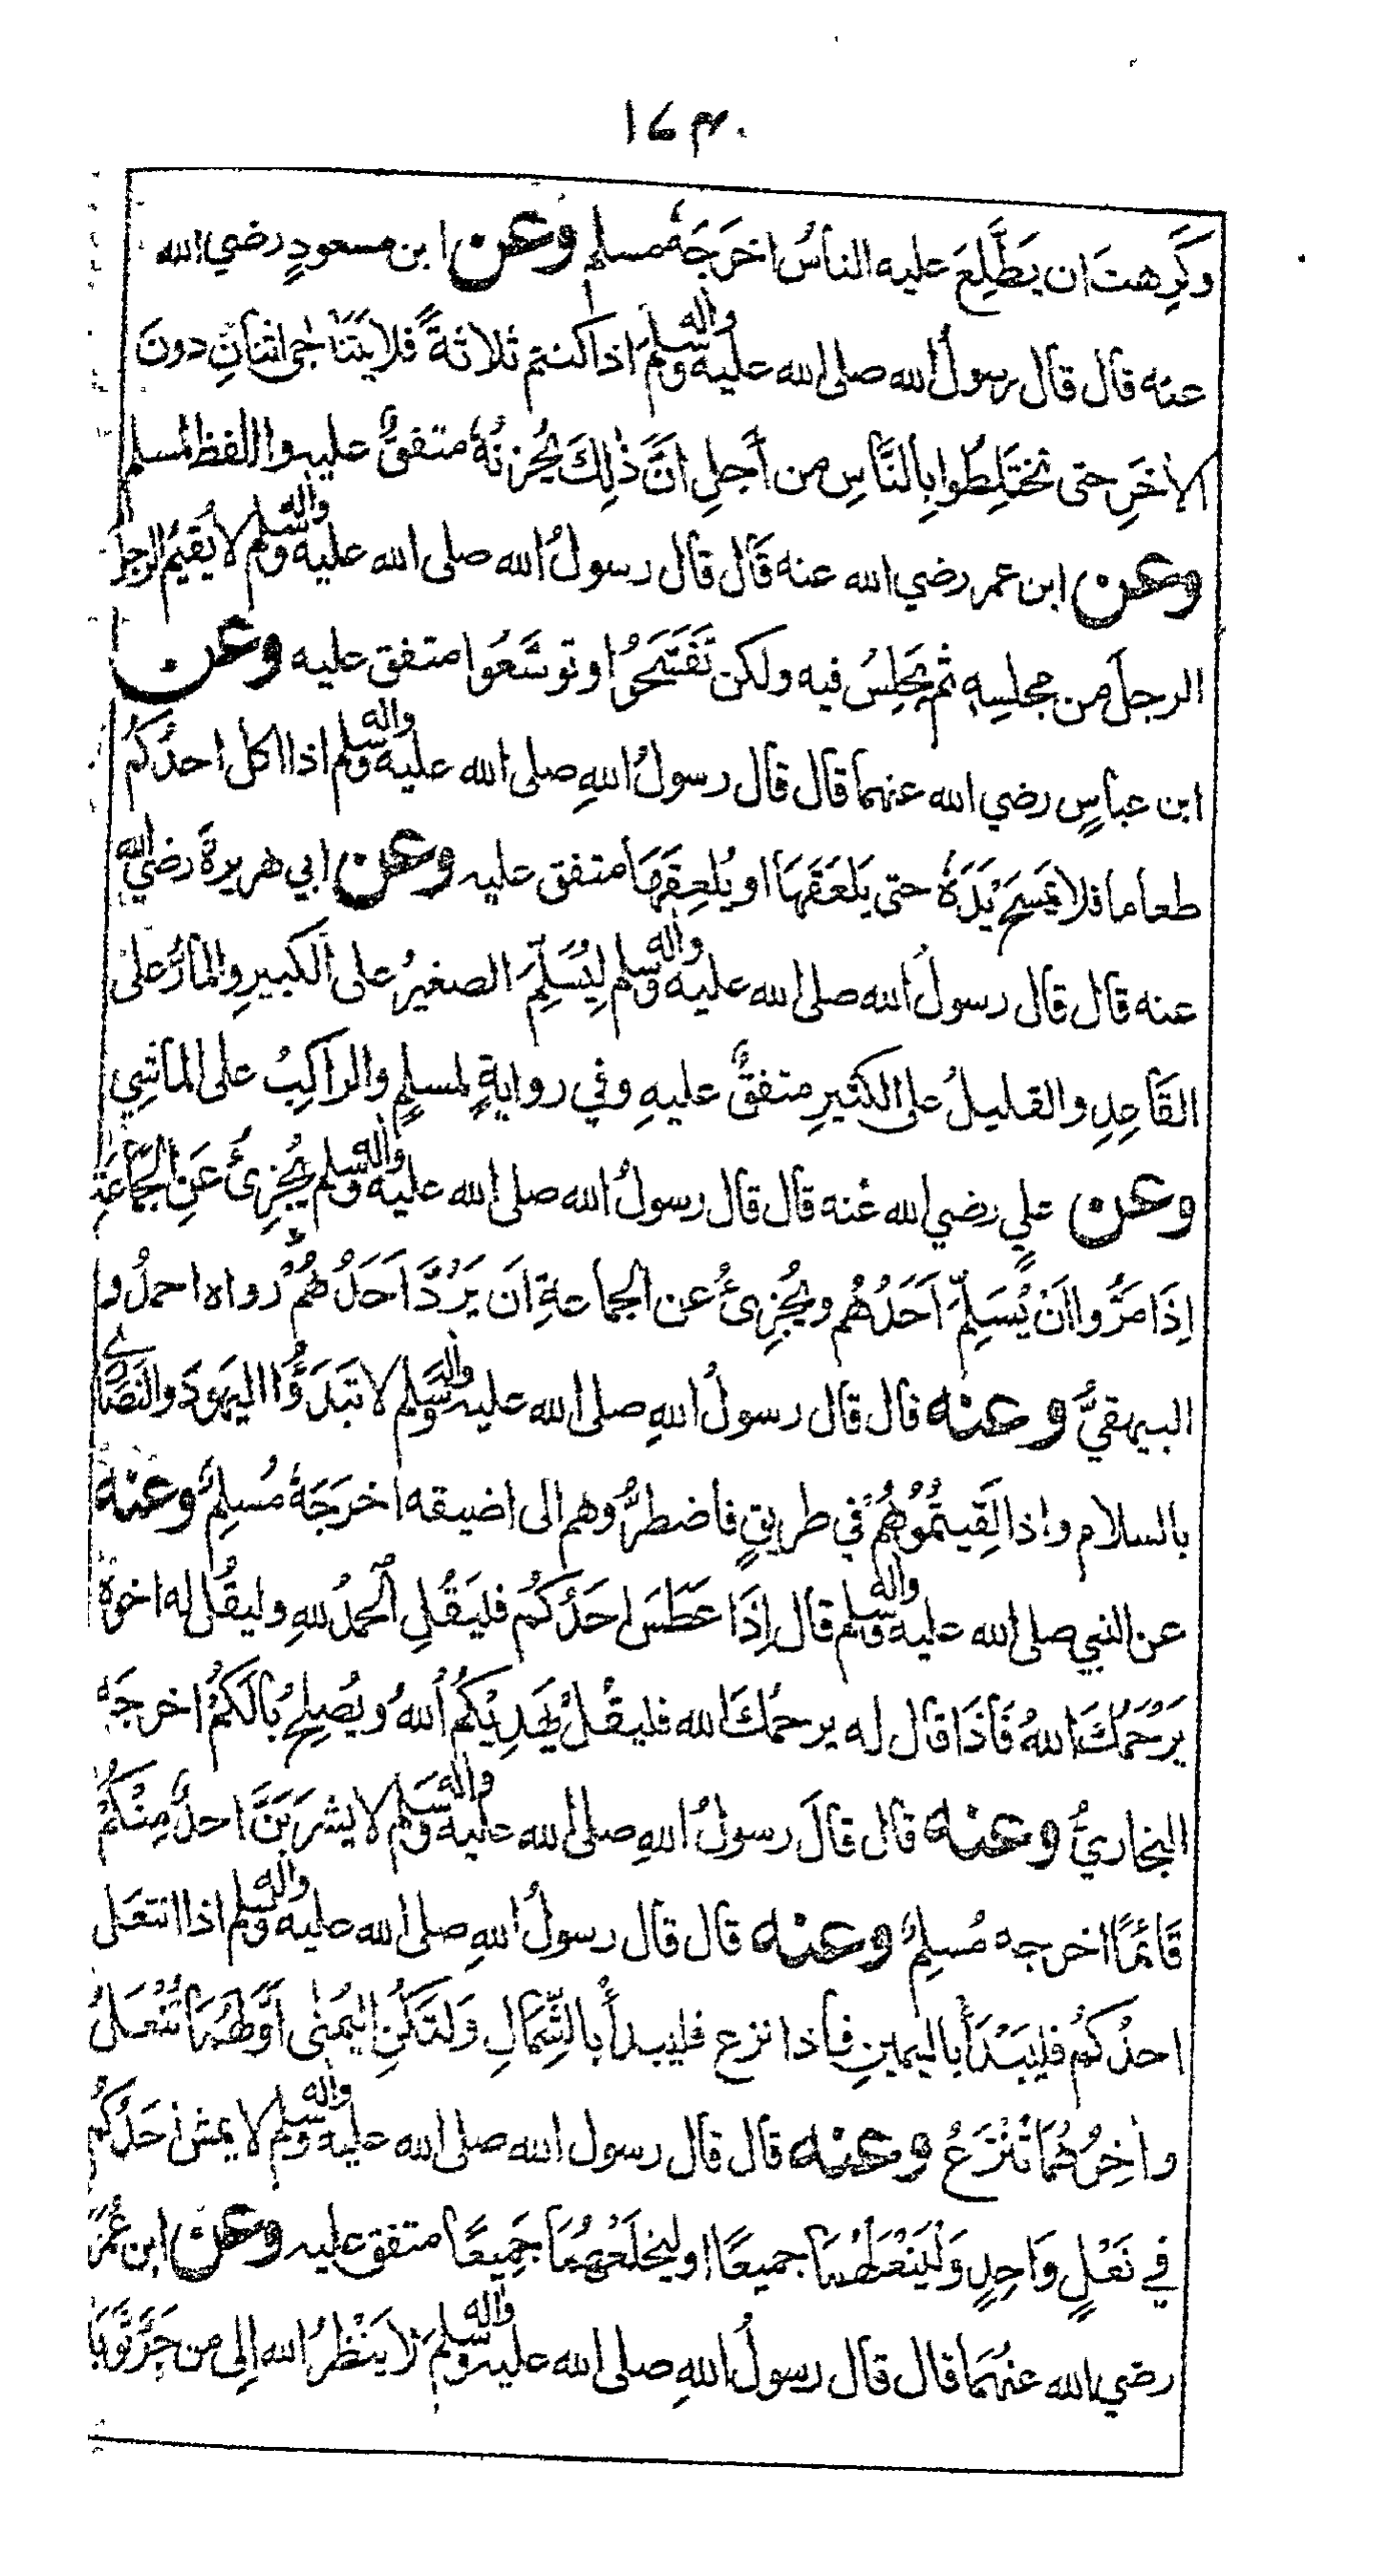 ١٧٣٠
وَكَرِهتَ ان يَطَّلِعَ عليه الناسُ اخرَجَهٗ مسلم وعن ابن مسعودٍ رضي الله
عنه قال قال رسولُ الله صلى الله عليه واله وسلم اذا كنتم ثلاثةً فلا يَتَنَاجى اثنانِ دونَ
الاخَرِ حتى تختَلِطُوا بِالنَّاسِ من أَجلِ اَنَّ ذٰلِكَ يُحزِنُهٗ متفقٌ عليه واللفظ لمسلم
وعن ابن عمر رضي الله عنه قَال قال رسولُ الله صلى الله عليه واله وسلم لا يُقيمُ الرجلُ
الرجلَ من مجلسِهٖ ثم يَجلِسُ فيه ولكن تَفَسَّحُوا وتوسَّعُوا متفق عليه وعن
ابن عباسٍ رضي الله عنهما قال قال رسولُ اللهِ صلى الله عليه واله وسلم اذا اكل احدُكُم
طعاما فلا يَمسَحْ يَدَهٗ حتى يَلعَقَهَا او يُلعِقَهَا متفق عليه وعن ابي هريرةَ رضي الله
عنه قال قال رسولُ الله صلى الله عليه واله وسلم لِيُسَلِّمَ الصغيرُ على الكبيرِ والمارُّ على
القَاعِدِ والقليلُ على الكثيرِ متفقٌ عليهِ وفي روايةٍ لمسلمٍ والراكِبُ على الماشِي
وعن علي رضي الله عنه قال قال رسولُ الله صلى الله عليه واله وسلم يُجزِئُ عَنِ الجَمَاعَةِ
اِذَا مَرُّوا اَنْ يُسَلِّمَ اَحَدُهُم ويُجزِئُ عن الجماعةِ اَن يَرُدَّ اَحَدُهُمْ رواه احمدُ وا
البيهقيُّ وعنه قال قال رسولُ اللهِ صلى الله عليه واله وسلم لا تَبدَؤُا اليهودَ والنصَارٰى
بالسلام واذا لَقِيتُمُوهُمْ في طريقٍ فاضطرُّوهم الى اضيقه اخرَجَهٗ مُسلِمٌ وعنه
عن النبي صلى الله عليه واله وسلم قال اِذَا عَطَسَ احَدُكُم فليَقُلِ الحمدُ للهِ وليقُل له اخوهُ
يَرْحَمُكَ اللهُ فَاذَا قال له يرحمُكَ الله فليقُلْ يَهدِيْكُمُ اللهُ ويُصلِحُ بالَكُمْ اخرجَهٗ
البخاريُّ وعنه قال قالَ رسولُ اللهِ صلى الله عليه واله وسلم لا يشرَبَنَّ احدٌ مِنْكُمْ
قَائمًا اخرجه مُسلِمٌ وعنه قال قال رسولُ اللهِ صلى الله عليه واله وسلم اذا انتعَل
احدُكُم فليَبْدَأ باليمينِ فاذا نزع فليبدأ بالشِّمَالِ وَلتكُنِ اليُمنٰى اَوَّلَهُمَا تُنْعَلُ
واٰخِرُهُمَا تُنْزَعُ وعنه قال قال رسول الله صلى الله عليه واله وسلم لا يمشِ احَدُكُم
في نَعْلٍ وَاحِدٍ وَليَنْعَلْهُمَا جميعًا او ليخلَعْهُمَا جَمِيعًا متفق عليه وعن ابن عُمَرَ
رضي الله عنهُمَا قال قال رسولُ اللهِ صلى الله عليه واله وسلم لا يَنْظُرُ الله اِلى من جَرَّ ثَوبَهٗ